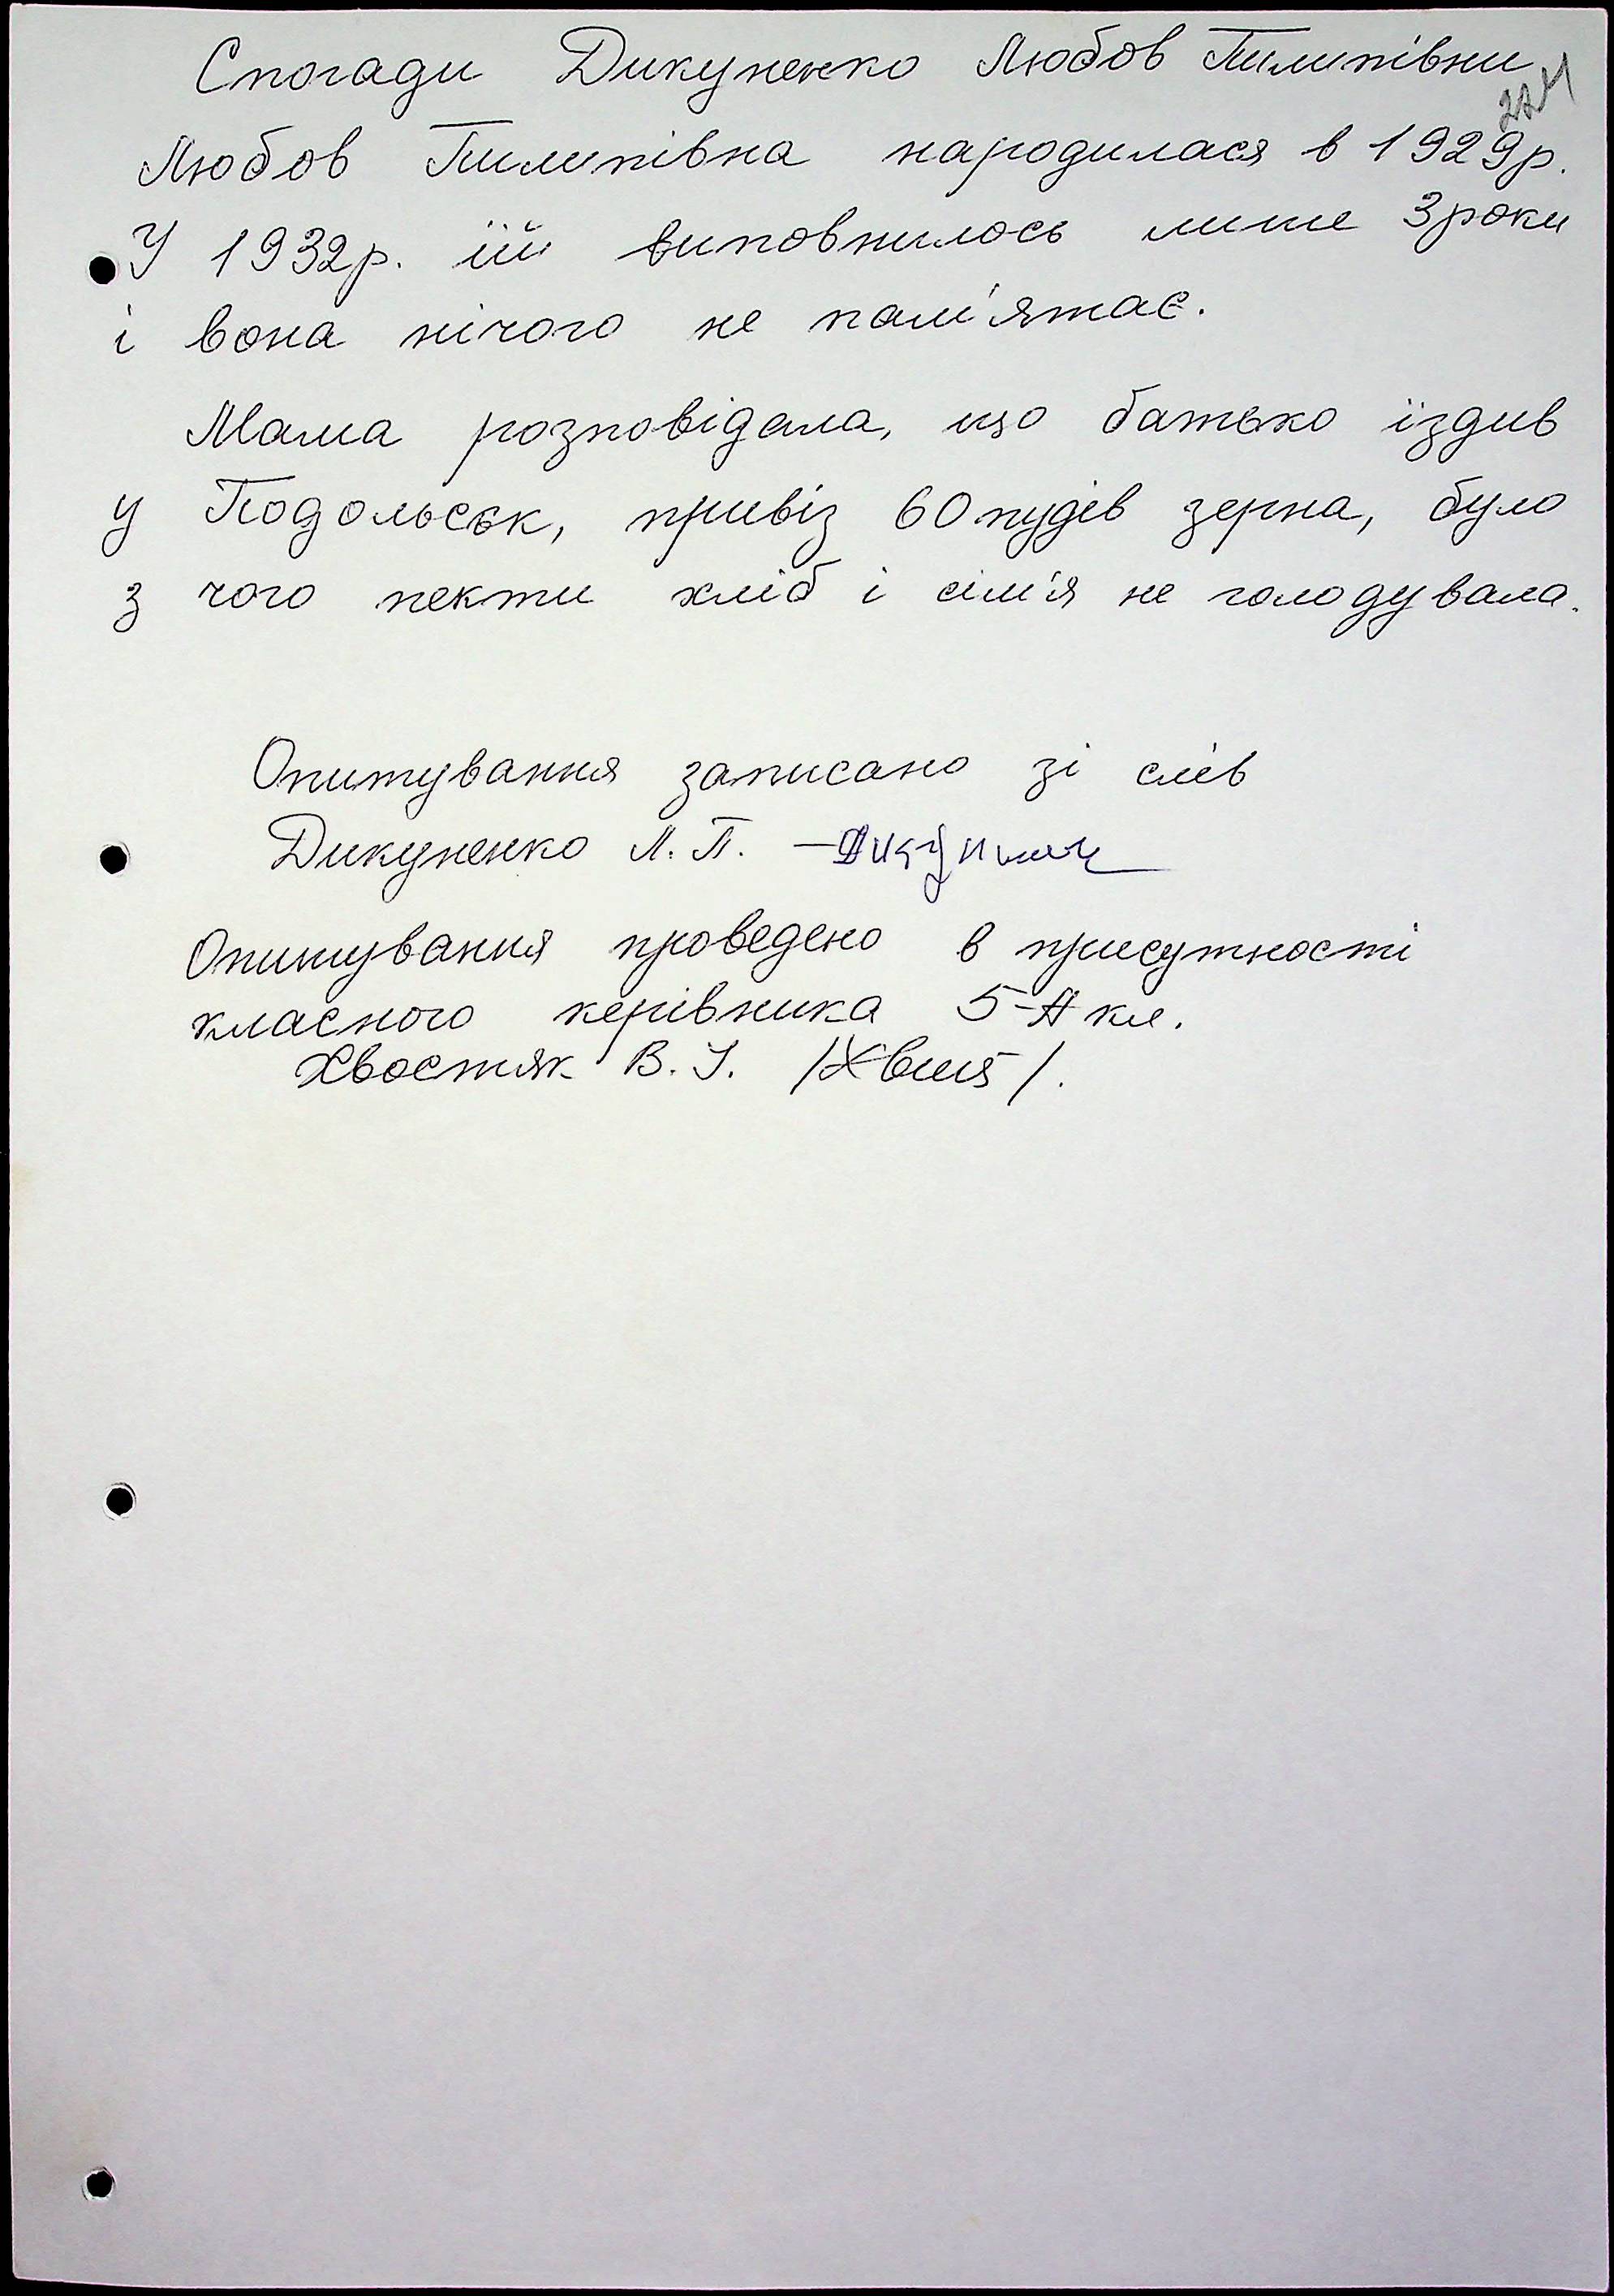 Спогади Дикуненко Любов Пилипівни
Любов Пилипівна народилася в 1929р.
У 1932р. їй виповнилось лише 3 роки
і вона нічого не пам'ятає.
Мама розповідала, що батько їздив
у Подольськ, привіз 60 пудів зерна, було
з чого пекти хліб і сім'я не голодувала.
Опитування записано зі слів
Дикуненко Л. П. –
Опитування проведено в присутності
класного керівника 5-А кл.
Хвостяк В. І.